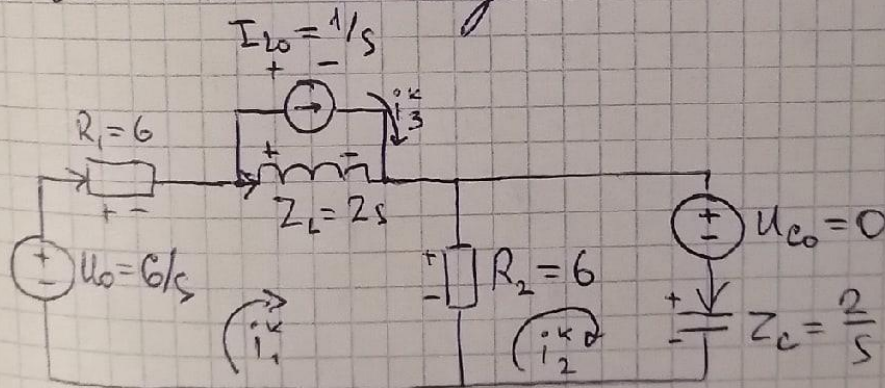 I_L0 = 1/s
+ -
i_3^k
R_1 = 6
+ -
+ -
Z_L = 2s
+
-
U_0 = 6/s
i_1^k
+
-
R_2 = 6
i_2^k
+
-
U_C0 = 0
+
-
Z_C = 2/s